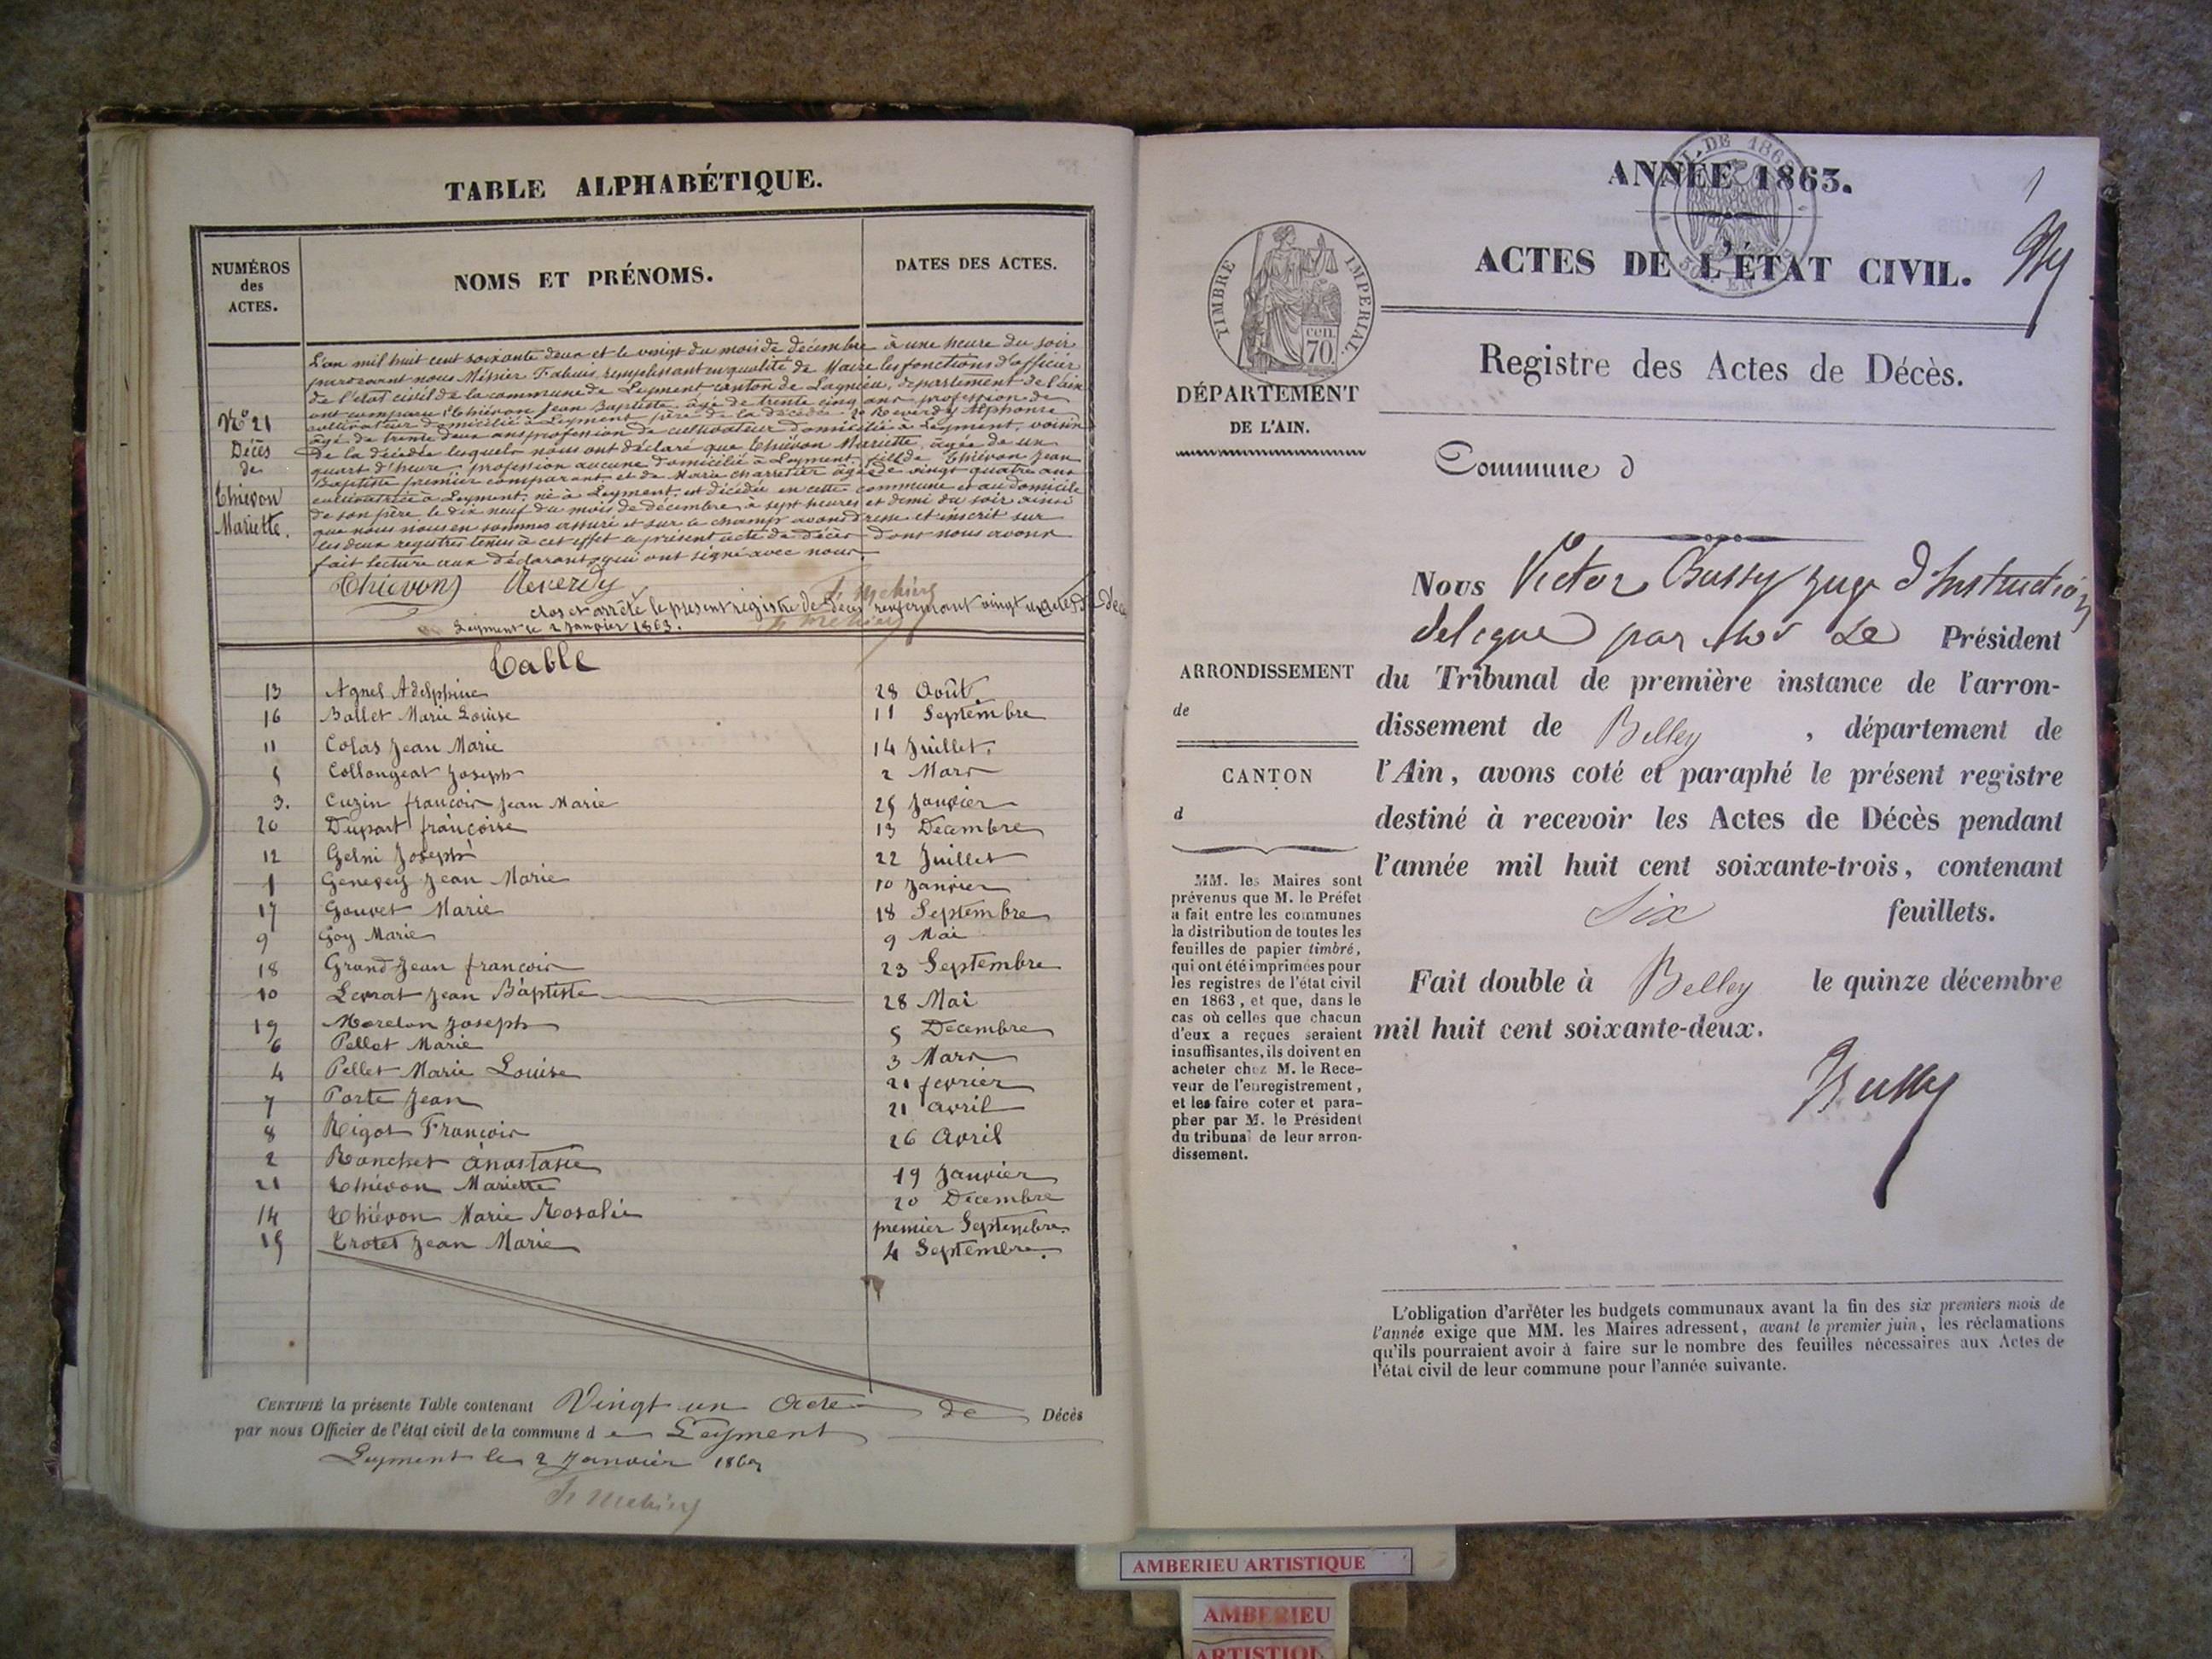 TABLE ALPHABÉTIQUE.
NUMÉROS
des
ACTES.
NOMS ET PRÉNOMS.
DATES DES ACTES.
N° 21
Décès
de
Thiévon
Mariette.
L'an mil huit cent soixante deux et le vingt du mois de décembre à une heure du soir
pardevant nous Méhier Fabius remplissant en qualité de Maire les fonctions d'officier
de l'état civil de la commune de Leyment canton de Lagnieu, département de l'ain
ont comparu 1° Thiévon Jean Baptiste âgé de trente cinq ans profession de
cultivateur domicilié à Leyment père de la décédée 2° Reverdy Alphonse
âgé de trente deux ans profession de cultivateur domicilié à Leyment, voisin
de la décédée lesquels nous ont déclaré que Thiévon Mariette, âgée de un
quart d'heure, profession aucune domicilié à Leyment fille de Thiévon Jean
Baptiste premier comparant et de Marie charretier âgée de vingt quatre ans
cultivatrice à Leyment, né à Leyment, est décédée en cette commune et au domicile
de son père le dix neuf du mois de décembre à sept heures et demi du soir ainsi
que nous nous en sommes assuré et sur le champ avons dressé et inscrit sur
les deux registres tenus à cet effet le présent acte de décès dont nous avons
fait lecture aux déclarants qui ont signé avec nous.
Thievon Reverdy
clos et arrêté le présent registre de décès renfermant vingt un actes de décès
Leyment le 2 Janvier 1863.
Table
13 Agnel Adelphine 28 Août
16 Ballet Marie Louise 11 Septembre
11 Colas Jean Marie 14 Juillet.
5 Collongeat Joseph 2 Mars
3. Cuzin françois Jean Marie 25 Janvier
20 Dupart françoise 13 Decembre
12 Gelni Joseph 22 Juillet
1 Genevey Jean Marie 10 Janvier
17 Gouvet Marie 18 Septembre
9 Goy Marie 9 Mai
18 Grand Jean françois 23 Septembre
10 Levrat Jean Baptiste 28 Mai
19 Morelon Joseph 5 Decembre
6 Pellet Marie 3 Mars
4 Pellet Marie Louise 21 fevrier
7 Porte Jean 21 avril
8 Rigot François 26 Avril
2 Ronchet Anastasie 19 Janvier
21 Thiévon Mariette 20 Decembre
14 Thiévon Marie Rosalie premier Septembre.
15 Trotet Jean Marie 4 Septembre.
CERTIFIÉ la présente Table contenant Vingt un Acte de Décès
par nous Officier de l'état civil de la commune de Leyment
Leyment le 2 Janvier
ANNÉE 1863.
ACTES DE L'ÉTAT CIVIL.
1
TIMBRE IMPERIAL.
cen.
70.
Registre des Actes de Décès.
DÉPARTEMENT
DE L'AIN.
Commune d
Nous Victor Bussy Juge d'Instruction
délégué par Mr Le Président
ARRONDISSEMENT
de
du Tribunal de première instance de l'arron-
dissement de Belley, département de
CANTON
d
l'Ain, avons coté et paraphé le présent registre
destiné à recevoir les Actes de Décès pendant
l'année mil huit cent soixante-trois, contenant
Six feuillets.
Fait double à Belley le quinze décembre
mil huit cent soixante-deux.
Bussy
MM. les Maires sont
prévenus que M. le Préfet
a fait entre les communes
la distribution de toutes les
feuilles de papier timbré,
qui ont été imprimées pour
les registres de l'état civil
en 1863, et que, dans le
cas où celles que chacun
d'eux a reçues seraient
insuffisantes, ils doivent en
acheter chez M. le Rece-
veur de l'enregistrement,
et les faire coter et para-
pher par M. le Président
du tribunal de leur arron-
dissement.
L'obligation d'arrêter les budgets communaux avant la fin des six premiers mois de
l'année exige que MM. les Maires adressent, avant le premier juin, les réclamations
qu'ils pourraient avoir à faire sur le nombre des feuilles nécessaires aux Actes de
l'état civil de leur commune pour l'année suivante.
AMBERIEU ARTISTIQUE
AMBERIEU
ARTISTIQU